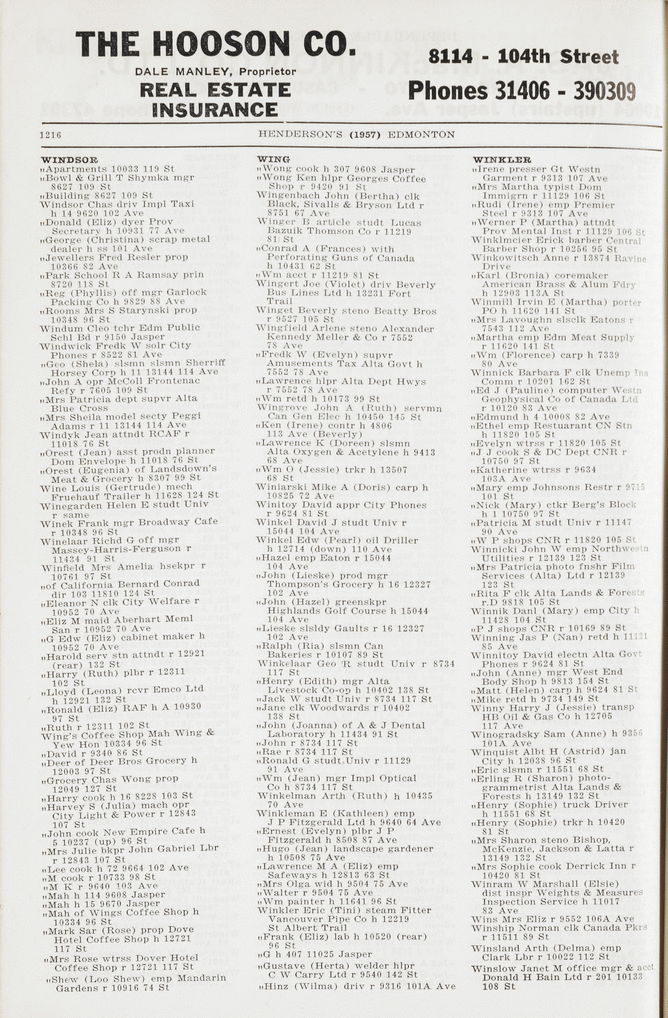 THE HOOSON CO.
DALE MANLEY, Proprietor
REAL ESTATE
INSURANCE
8114 - 104th Street
Phones 31406 - 390309
1216
HENDERSON'S (1957) EDMONTON
WINDSOR
„Apartments 10033 119 St
„Bowl & Grill T Shymka mgr
8627 109 St
„Building 8627 109 St
Windsor Chas driv Impl Taxi
h 14 9620 102 Ave
„Donald (Eliz) dyer Prov
Secretary h 10931 77 Ave
„George (Christina) scrap metal
dealer h ss 101 Ave
„Jewellers Fred Resler prop
10366 82 Ave
„Park School R A Ramsay prin
8720 118 St
„Reg (Phyllis) off mgr Garlock
Packing Co h 9829 88 Ave
„Rooms Mrs S Starynski prop
10348 96 St
Windum Cleo tchr Edm Public
Schl Bd r 9150 Jasper
Windwick Fredk W solr City
Phones r 8522 81 Ave
„Geo (Shela) slsmn slsmn Sherriff
Horsey Corp h 11 13144 114 Ave
„John A opr McColl Frontenac
Refy r 7605 109 St
„Mrs Patricia dept supvr Alta
Blue Cross
„Mrs Sheila model secty Peggi
Adams r 11 13144 114 Ave
Windyk Jean attndt RCAF r
11018 76 St
„Orest (Jean) asst prodn planner
Dom Envelope h 11018 76 St
„Orest (Eugenia) of Landsdown's
Meat & Grocery h 8307 99 St
Wine Louis (Gertrude) mech
Fruehauf Trailer h 11628 124 St
Winegarden Helen E studt Univ
r same
Winek Frank mgr Broadway Cafe
r 10348 96 St
Winelaar Richd G off mgr
Massey-Harris-Ferguson r
11434 91 St
Winfield Mrs Amelia hsekpr r
10761 97 St
„of California Bernard Conrad
dir 103 11810 124 St
„Eleanor N clk City Welfare r
10952 70 Ave
„Eliz M maid Aberhart Meml
San r 10952 70 Ave
„G Edw (Eliz) cabinet maker h
10952 70 Ave
„Harold serv stn attndt r 12921
(rear) 132 St
„Harry (Ruth) plbr r 12311
102 St
„Lloyd (Leona) rcvr Emco Ltd
h 12921 132 St
„Ronald (Eliz) RAF h A 10930
97 St
„Ruth r 12311 102 St
Wing's Coffee Shop Mah Wing &
Yew Hon 10334 96 St
„David r 9340 86 St
„Deer of Deer Bros Grocery h
12003 97 St
„Grocery Chas Wong prop
12049 127 St
„Harry cook h 16 8228 103 St
„Harvey S (Julia) mach opr
City Light & Power r 12843
107 St
„John cook New Empire Cafe h
5 10237 (up) 96 St
„Mrs Julie bkpr John Gabriel Lbr
r 12843 107 St
„Lee cook h 72 9664 102 Ave
„M cook r 10733 98 St
„M K r 9640 103 Ave
„Mah h 114 9608 Jasper
„Mah h 15 9670 Jasper
„Mah of Wings Coffee Shop h
10334 96 St
„Mark Sar (Rose) prop Dove
Hotel Coffee Shop h 12721
117 St
„Mrs Rose wtrss Dover Hotel
Coffee Shop r 12721 117 St
„Shew (Loo Shew) emp Mandarin
Gardens r 10916 74 St
WING
„Wong cook h 307 9608 Jasper
„Wong Ken hlpr Georges Coffee
Shop r 9420 91 St
Wingenbach John (Bertha) clk
Black, Sivalls & Bryson Ltd r
8751 67 Ave
Winger B article studt Lucas
Bazuik Thomson Co r 11219
81 St
„Conrad A (Frances) with
Perforating Guns of Canada
h 10431 62 St
„Wm acct r 11219 81 St
Wingert Joe (Violet) driv Beverly
Bus Lines Ltd h 13231 Fort
Trail
Winget Beverly steno Beatty Bros
r 9527 105 St
Wingfield Arlene steno Alexander
Kennedy Meller & Co r 7552
78 Ave
„Fredk W (Evelyn) supvr
Amusements Tax Alta Govt h
7552 78 Ave
„Lawrence hlpr Alta Dept Hwys
r 7552 78 Ave
„Wm retd h 10173 99 St
Wingrove John A (Ruth) servmn
Can Gen Elec h 10450 145 St
„Ken (Irene) contr h 4806
113 Ave (Beverly)
„Lawrence K (Doreen) slsmn
Alta Oxygen & Acetylene h 9413
68 Ave
„Wm O (Jessie) trkr h 13507
68 St
Winiarski Mike A (Doris) carp h
10825 72 Ave
Winitoy David appr City Phones
r 9624 81 St
Winkel David J studt Univ r
15044 104 Ave
Winkel Edw (Pearl) oil Driller
h 12714 (down) 110 Ave
„Hazel emp Eaton r 15044
104 Ave
„John (Lieske) prod mgr
Thompson's Grocery h 16 12327
102 Ave
„John (Hazel) greenskpr
Highlands Golf Course h 15044
104 Ave
„Lieske slsldy Gaults r 16 12327
102 Ave
„Ralph (Ria) slsmn Can
Bakeries r 10107 89 St
Winkelaar Geo R studt Univ r 8734
117 St
„Henry (Edith) mgr Alta
Livestock Co-op h 10402 138 St
„Jack W studt Univ r 8734 117 St
„Jane clk Woodwards r 10402
138 St
„John (Joanna) of A & J Dental
Laboratory h 11434 91 St
„John r 8734 117 St
„Rae r 8734 117 St
„Ronald G studt.Univ r 11129
91 Ave
„Wm (Jean) mgr Impl Optical
Co h 8734 117 St
Winkelman Arth (Ruth) h 10435
70 Ave
Winkleman E (Kathleen) emp
J P Fitzgerald Ltd h 9640 64 Ave
„Ernest (Evelyn) plbr J P
Fitzgerald h 8508 87 Ave
„Hugo (Jean) landscape gardener
h 10508 75 Ave
„Lawrence M A (Eliz) emp
Safeways h 12813 63 St
„Mrs Olga wid h 9504 75 Ave
„Walter r 9504 75 Ave
„Wm painter h 11641 96 St
Winkler Eric (Tini) steam Fitter
Vancouver Pipe Co h 12219
St Albert Trail
„Frank (Eliz) lab h 10520 (rear)
96 St
„G h 407 11025 Jasper
„Gustave (Herta) welder hlpr
C W Carry Ltd r 9540 142 St
„Hinz (Wilma) driv r 9316 101A Ave
WINKLER
„Irene presser Gt Westn
Garment r 9313 107 Ave
„Mrs Martha typist Dom
Immigrn r 11129 106 St
„Rudi (Irene) emp Premier
Steel r 9313 107 Ave
„Werner P (Martha) attndt
Prov Mental Inst r 11129 106 St
Winklmeier Erick barber Central
Barber Shop r 10256 95 St
Winkowitsch Anne r 13874 Ravine
Drive
„Karl (Bronia) coremaker
American Brass & Alum Fdry
h 12903 113A St
Winmill Irvin E (Martha) porter
PO h 11620 141 St
„Mrs Lavoughn slsclk Eatons r
7543 112 Ave
„Martha emp Edm Meat Supply
r 11620 141 St
„Wm (Florence) carp h 7339
80 Ave
Winnick Barbara F clk Unemp Ins
Comm r 10201 162 St
„Ed J (Pauline) computer Westn
Geophysical Co of Canada Ltd
r 10120 83 Ave
„Edmund h 4 10008 82 Ave
„Ethel emp Restuarant CN Stn
h 11820 105 St
„Evelyn wtrss r 11820 105 St
„J J cook S & DC Dept CNR r
10750 97 St
„Katherine wtrss r 9634
103A Ave
„Mary emp Johnsons Restr r 9715
101 St
„Nick (Mary) ctkr Berg's Block
h 1 10750 97 St
„Patricia M studt Univ r 11147
90 Ave
„W P shops CNR r 11820 105 St
Winnicki John W emp Northwestn
Utilities r 12139 123 St
„Mrs Patricia photo fnshr Film
Services (Alta) Ltd r 12139
123 St
„Rita F clk Alta Lands & Forests
r.D 9818 105 St
Winnik Danl (Mary) emp City h
11428 104 St
„P J shops CNR r 10169 89 St
Winning Jas P (Nan) retd h 11131
85 Ave
Winnitoy David electn Alta Govt
Phones r 9624 81 St
„John (Anne) mgr West End
Body Shop h 9813 154 St
„Matt (Helen) carp h 9624 81 St
„Mike retd h 9734 149 St
Winny Harry J (Jessie) transp
HB Oil & Gas Co h 12705
117 Ave
Winogradsky Sam (Anne) h 9356
101A Ave
Winquist Albt H (Astrid) jan
City h 12038 96 St
„Eric slsmn r 11551 68 St
„Erling R (Sharon) photo-
grammetrist Alta Lands &
Forests h 13149 132 St
„Henry (Sophie) truck Driver
h 11551 68 St
„Henry (Sophie) trkr h 10420
81 St
„Mrs Sharon steno Bishop,
McKenzie, Jackson & Latta r
13149 132 St
„Mrs Sophie cook Derrick Inn r
10420 81 St
Winram W Marshall (Elsie)
dist inspr Weights & Measures
Inspection Service h 11017
83 Ave
Wins Mrs Eliz r 9552 106A Ave
Winship Norman clk Canada Pkrs
r 11511 89 St
Winsland Arth (Delma) emp
Clark Lbr r 10022 112 St
Winslow Janet M office mgr & acct
Donald H Bain Ltd r 201 10133
108 St